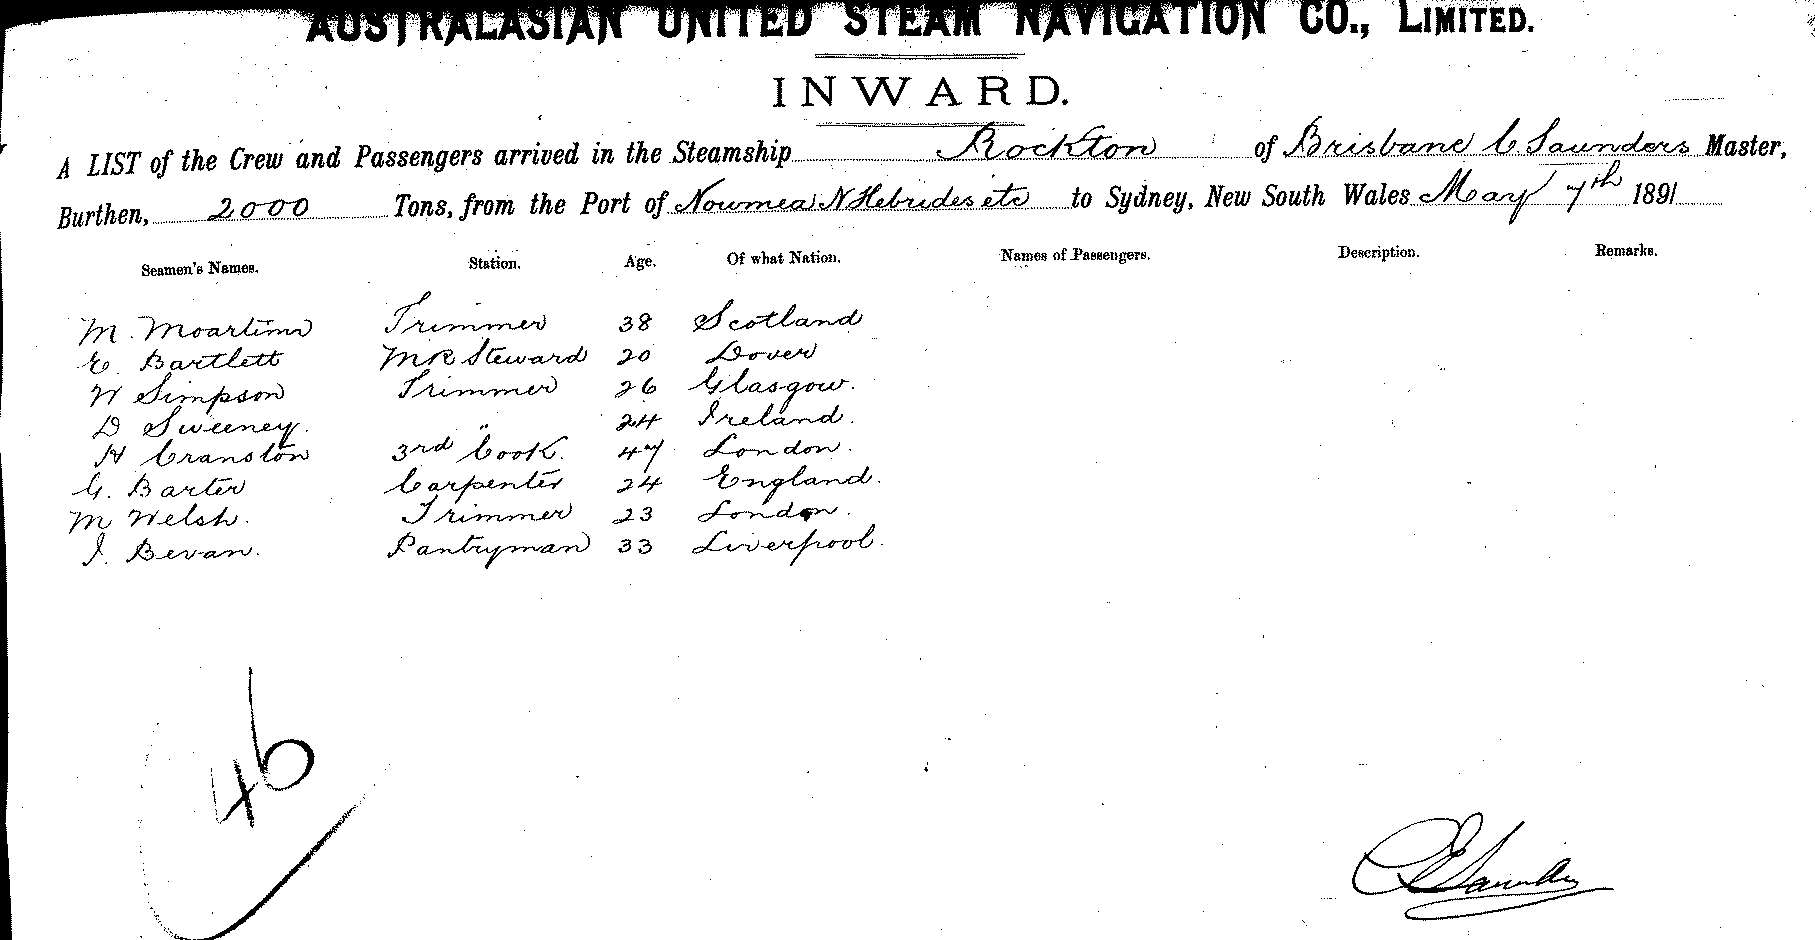 AUSTRALASIAN UNITED STEAM NAVIGATION CO., LIMITED.
INWARD.
A LIST of the Crew and Passengers arrived in the Steamship Rockton of Brisbane C. Saunders Master,
Burthen, 2000 Tons, from the Port of Nowmea N Hebrides etc to Sydney, New South Wales May 7th 1891
Seamen's Names. Station. Age. Of what Nation. Names of Passengers. Description. Remarks.
M. Moartimr Trimmer 38 Scotland
E. Bartlett MR Steward 20 Dover
W Simpson Trimmer 26 Glasgow.
D Sweeney. " 24 Ireland.
H Cranston 3rd Cook. 47 London.
G. Barter Carpenter 24 England.
M Welsh. Trimmer 23 London.
J. Bevan. Pantryman 33 Liverpool.
46
C E Saunders